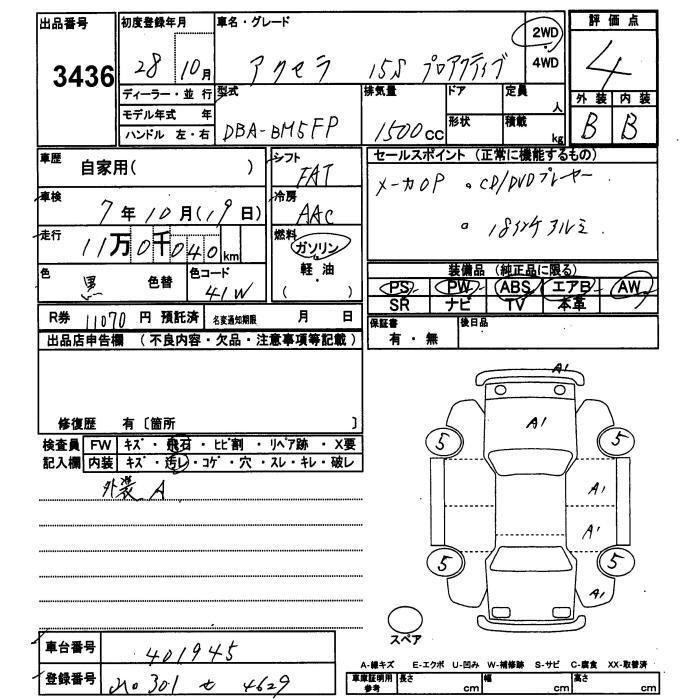 出品番号
3436
初度登録年月
28 10月
車名・グレード
アクセラ 15S プロアクティブ
2WD
4WD
評価点
4
外装 内装
B B
ディーラー・並行
モデル年式 年
ハンドル 左・右
型式
DBA-BM5FP
排気量
1500cc
ドア
形状
定員
人
積載
kg
車歴
自家用( )
車検
7年10月(19日)
走行
11万0千040km
色
黒 色替
色コード
41W
シフト
FAT
冷房
AAC
燃料
ガソリン
軽油
( )
セールスポイント (正常に機能するもの)
メーカOP 。CD/DVDプレーヤー
。18インチアルミ
装備品 (純正品に限る)
PS PW ABS エアB AW
SR ナビ TV 本革
R券 11070 円 預託済 名変通知期限 月 日
保証書
有・無
後日品
出品店申告欄 (不良内容・欠品・注意事項等記載)
修復歴 有〔箇所 〕
検査員 FW キズ・飛石・ヒビ割・リペア跡・X要
記入欄 内装 キズ・汚レ・コゲ・穴・スレ・キレ・破レ
外装 A
A1
A1
5
5
A1
A1
5
5
A1
スペア
車台番号
401945
登録番号
301 せ 4629
A-線キズ E-エクボ U-凹み W-補修跡 S-サビ C-腐食 XX-取替済
車庫証明用
参考
長さ cm 幅 cm 高さ cm